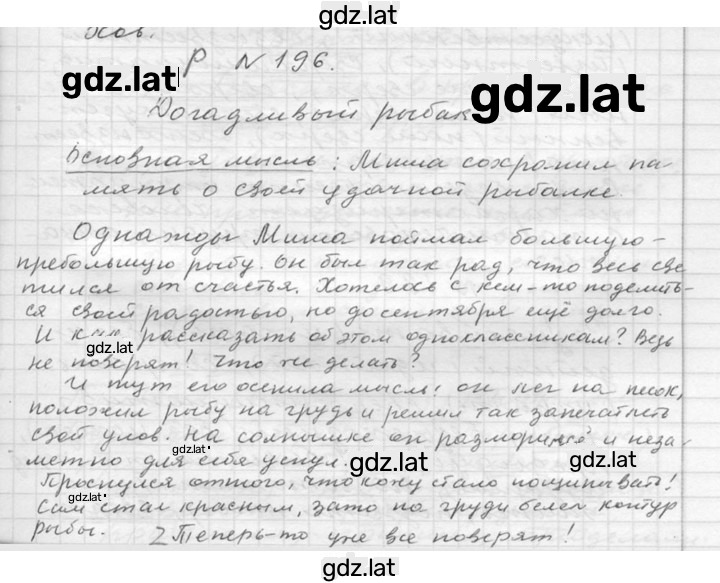 gdz.lat
Хов.
gdz.lat Р N 196.
gdz.lat
Догадливый рыбак
Основная мысль : Миша сохранил па-
мять о своей удачной рыбалке.
Однажды Миша поймал большую-
пребольшую рыбу. Он был так рад, что весь све
тился от счастья. Хотелось с кем-то поделить-
ся своей радостью, но до сентября ещё долго.
И как рассказать об этом одноклассникам? Ведь
gdz.lat
не поверят! Что же делать?
И тут его осенила мысль: он лег на песок,
положил рыбу на грудь и решил так запечатлеть
свой улов. На солнышке он разморился и неза-
gdz.lat
метно для себя уснул.
gdz.lat gdz.lat
Проснулся оттого, что кожу стало пощипывать!
gdz.lat
Сам стал красным, зато на груди белел контур
рыбы. Теперь-то уже все поверят!
gdz.lat